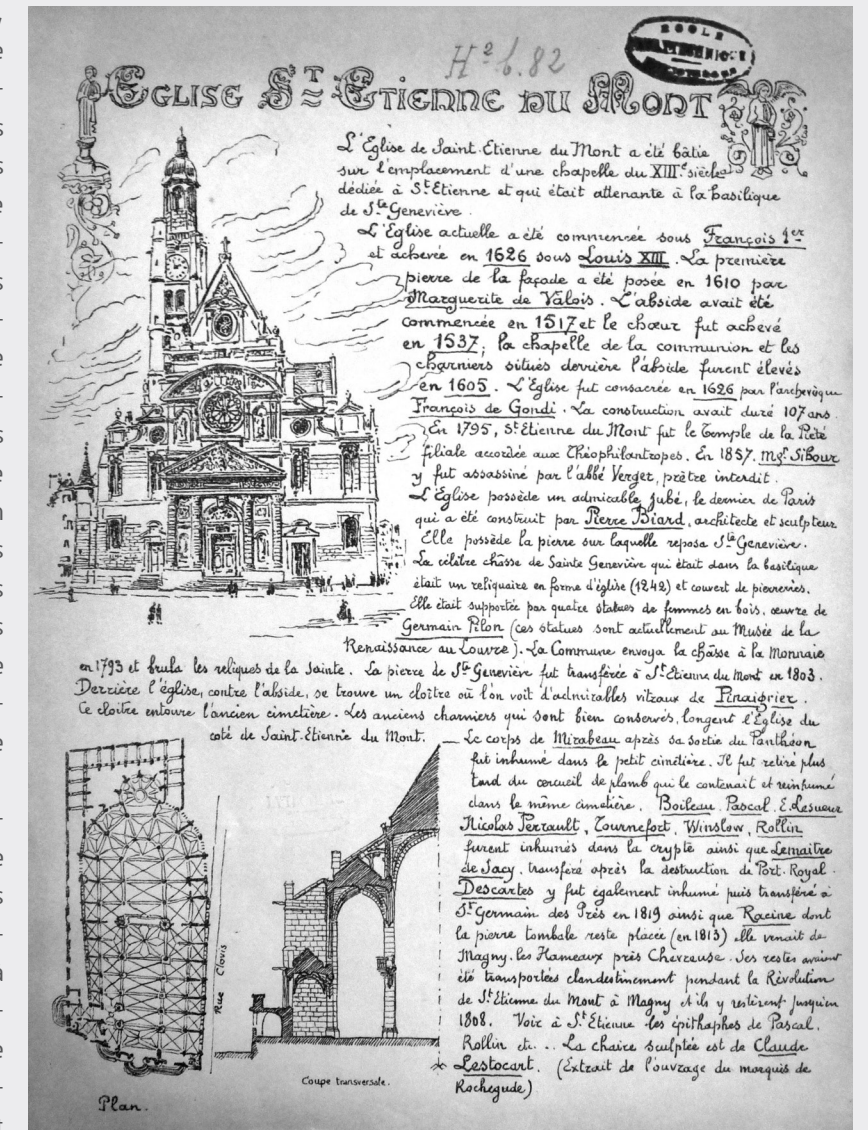 H² b. 82
ECOLE
EGLISE ST ETIENNE DU MONT
L'Eglise de Saint-Etienne du Mont a été bâtie
sur l'emplacement d'une chapelle du XIIIe siècle
dédiée à St Etienne et qui était attenante à la basilique
de Ste Geneviève.
L'Eglise actuelle a été commencée sous François 1er
et achevée en 1626 sous Louis XIII. La première
pierre de la façade a été posée en 1610 par
Marguerite de Valois. L'abside avait été
commencée en 1517 et le chœur fut achevé
en 1537; la chapelle de la communion et les
charniers situés derrière l'abside furent élevés
en 1605. L'Eglise fut consacrée en 1626 par l'archevêque
François de Gondi. La construction avait duré 107 ans.
En 1795, St Etienne du Mont fut le Temple de la Piété
filiale accordée aux Théophilantropes. En 1857, Mgr Sibour
y fut assassiné par l'abbé Verger, prêtre interdit.
L'Eglise possède un admirable jubé, le dernier de Paris
qui a été construit par Pierre Biard, architecte et sculpteur
Elle possède la pierre sur laquelle reposa Ste Geneviève.
La célèbre châsse de Sainte Geneviève qui était dans la basilique
était un reliquaire en forme d'église (1242) et couvert de pierreries.
Elle était supportée par quatre statues de femmes en bois, œuvre de
Germain Pilon (ces statues sont actuellement au Musée de la
Renaissance au Louvre). La Commune envoya la châsse à la Monnaie
en 1793 et brula les reliques de la Sainte. La pierre de Ste Geneviève fut transférée à St Etienne du Mont en 1803.
Derrière l'église, contre l'abside, se trouve un cloître où l'on voit d'admirables vitraux de Pinaigrier.
Ce cloître entoure l'ancien cimetière. Les anciens charniers qui sont bien conservés, longent l'Eglise du
coté de Saint-Etienne du Mont. — Le corps de Mirabeau après sa sortie du Panthéon
fut inhumé dans le petit cimetière. Il fut retiré plus
tard du cercueil de plomb qui le contenait et reinhumé
dans le même cimetière. Boileau, Pascal, E. Lesueur
Nicolas Perrault, Tournefort, Winslow, Rollin
furent inhumés dans la crypte ainsi que Lemaitre
de Sacy, transféré après la destruction de Port-Royal.
Descartes y fut également inhumé puis transféré à
St Germain des Près en 1819 ainsi que Racine dont
la pierre tombale reste placée (en 1813) elle venait de
Magny-les Hameaux près Chevreuse. Ses restes avaient
été transportées clandestinement pendant la Révolution
de St Etienne du Mont à Magny et ils y restèrent jusqu'en
1808. Voir à St Etienne les épithaphes de Pascal,
Rollin etc... La chaire sculptée est de Claude
Lestocart. (Extrait de l'ouvrage du marquis de
Rochegude)
Rue Clovis
Coupe transversale.
Plan.